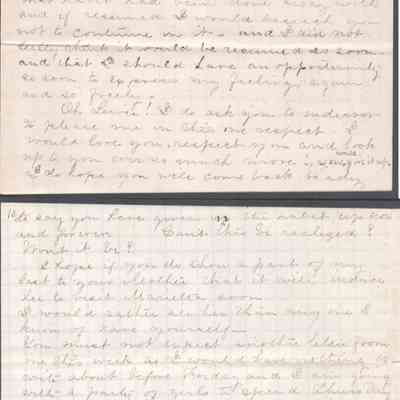 that habit had been done away with
and if resumed I would beseech you
not to continue in it - and I did not
think that it would be resumed so soon
and that I should have an opportunity
so soon to express my feelings again
and so freely.
Oh Lewis! I do ask you to endeavor
to please me in this one respect. I
would love you, respect you and look
up to you ever so much more if you would give it up
I do hope you will come back to day
to say you have given up the habit
and forever. Can't this be realized?
Won't it be?
I hope if you do show a part of my
last to your Mother that it will induce
her to visit Marietta soon
I would rather see her than any one I
know of save yourself -
You must not expect another letter from
me this week as I would have nothing to
write about before Friday and I am going
with a party of girls to spend Thursday